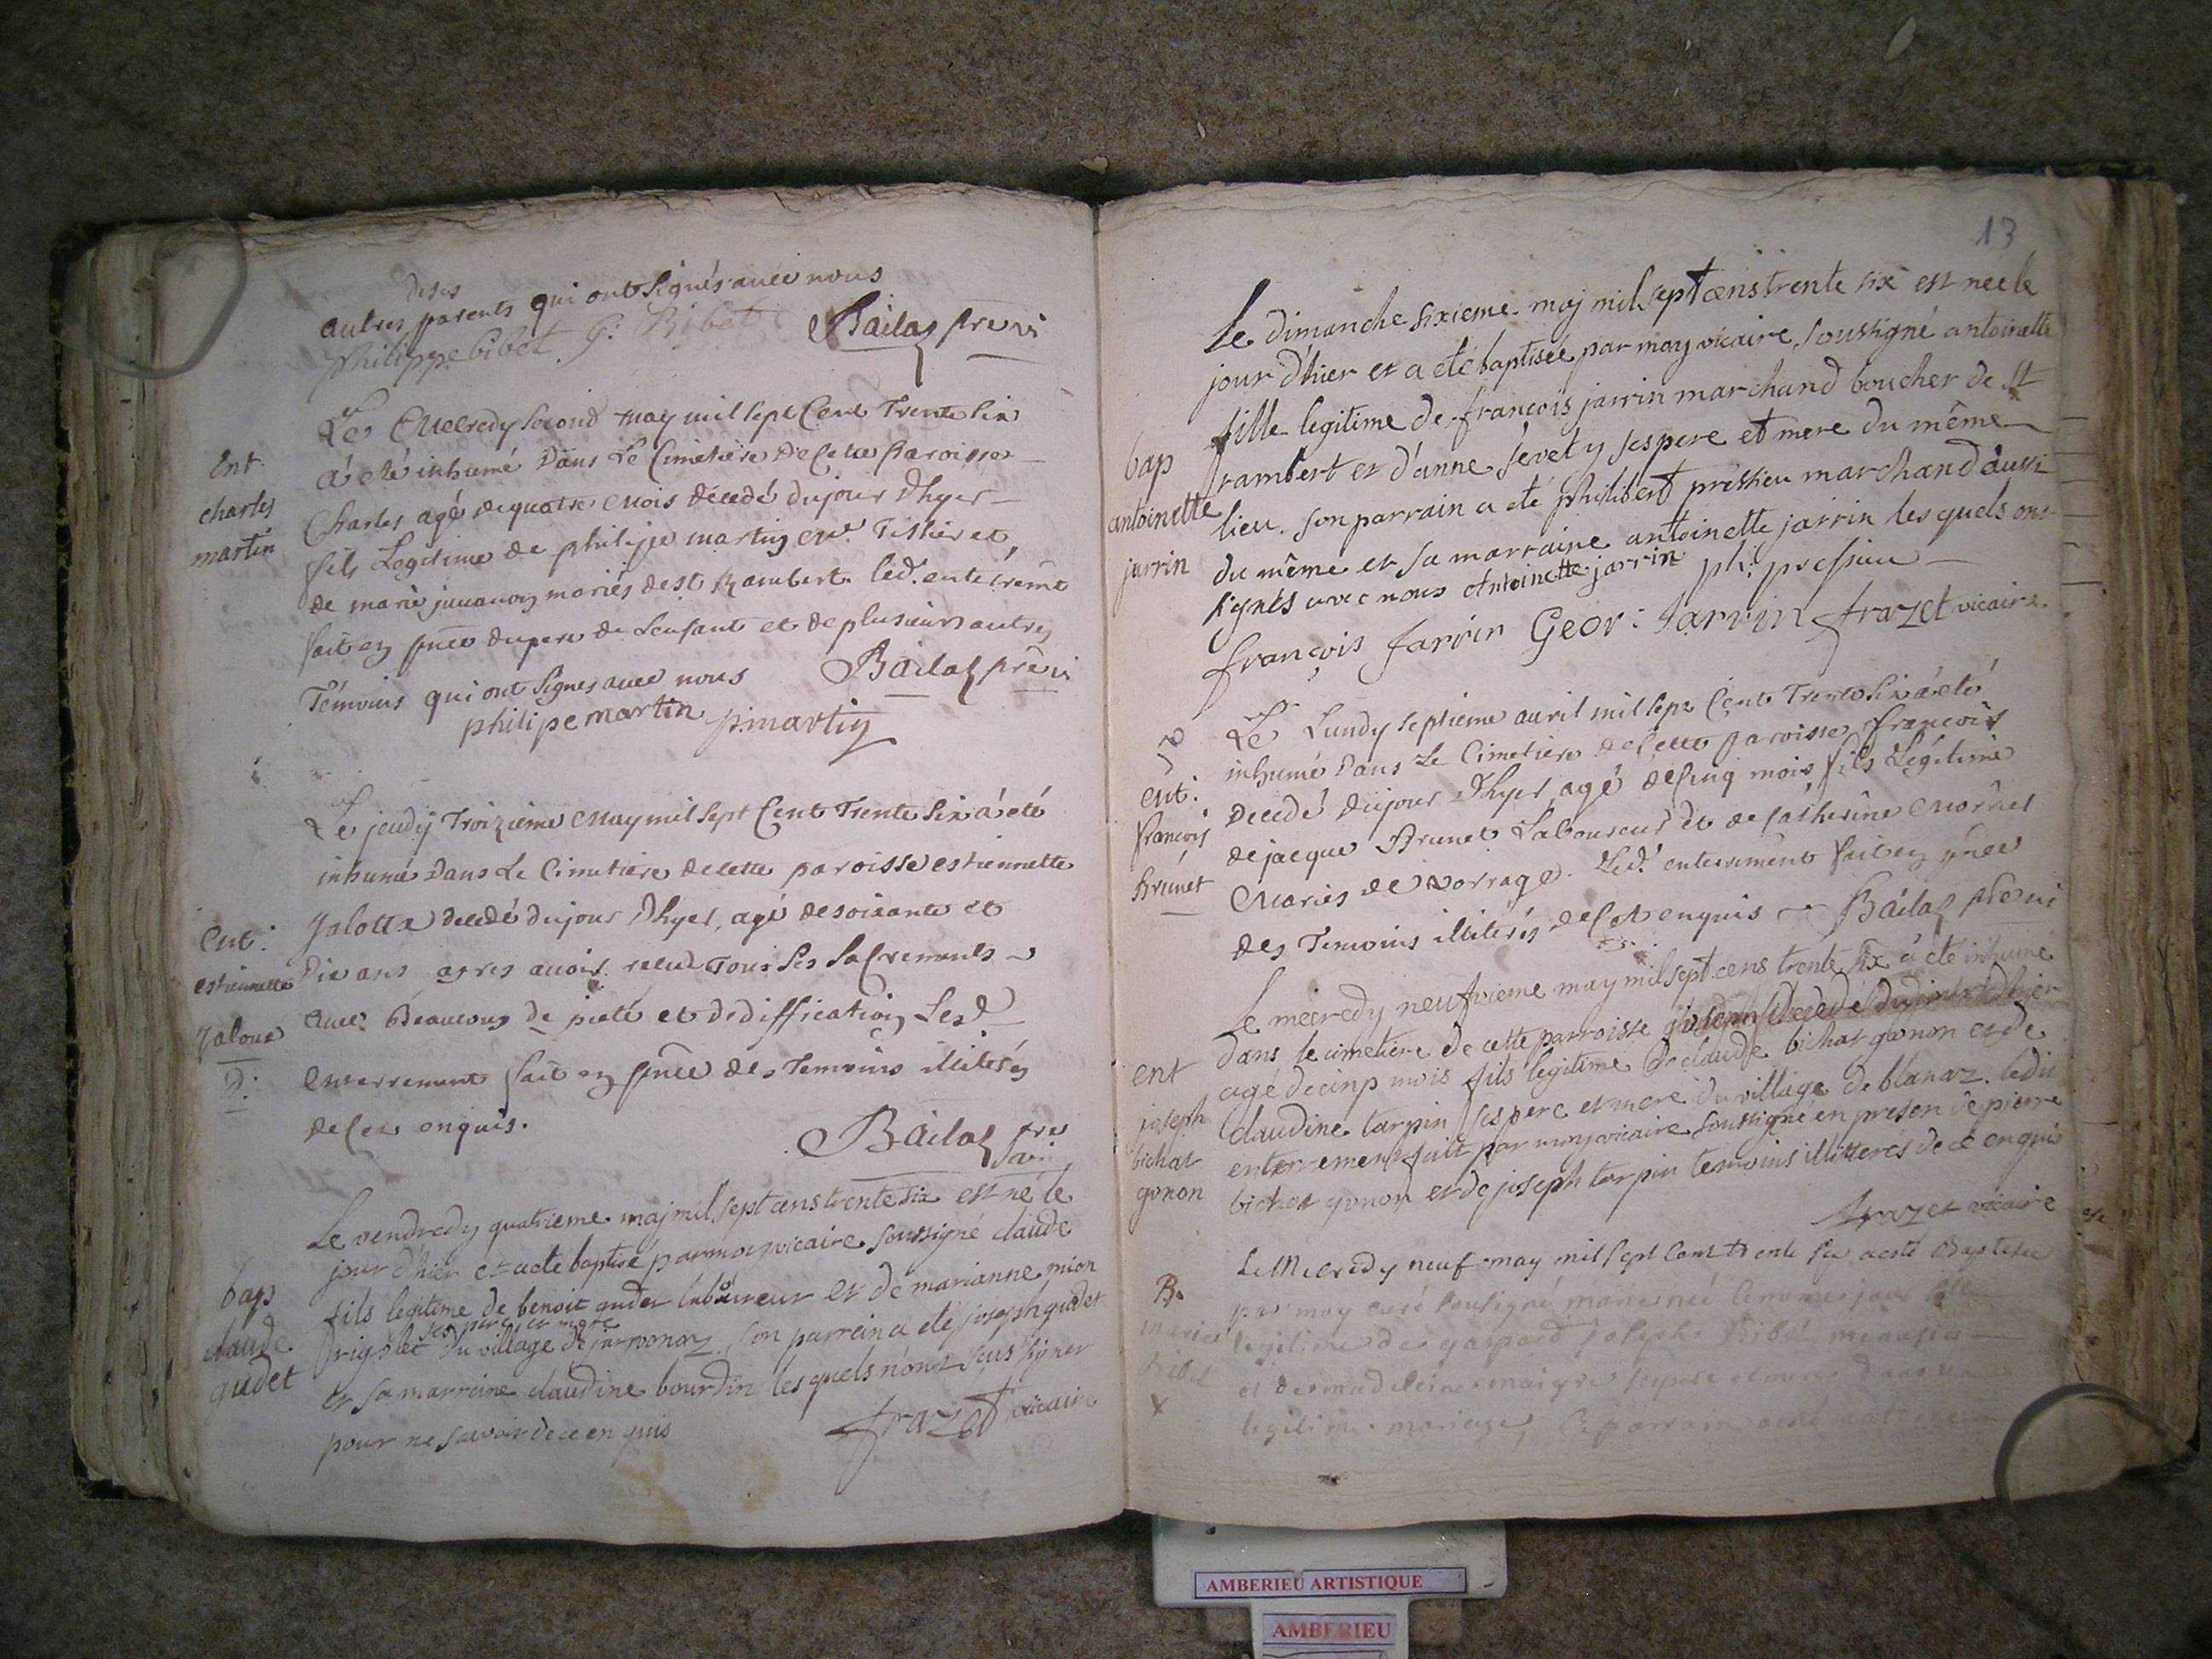 de ses
autres parents qui ont signés avec nous
philippe bibet G: Bibet Bailaz pre vi
Le Mecredy second may mil sept Cent Trente Six
Ent.
charles
martin
a été inhumé Dans Le Cimetiere De Cette Paroisse
Charles agé de quatre mois décedé du jour D'hyer
fils Legitime de philipe martin Me. Tissier et
de marie juvanon mariés de st Rambert. led. enterremt
fait en pnce du pere de Lenfant et de plusieurs autres
Témoins qui ont signes avec nous Bailaz pre vi
philipe martin p. martin
Le jeudy Troizieme May mil sept Cent Trente Six a été
inhumé Dans Le Cimetiere de cette paroisse estiennette
ent:
estiennette
Jaloux
D.
Jaloux decedé du jour D'hyer, agé de soixante et
Dix ans apres avoir receu Tous ses sacrements
avec Beaucoup de pieté et Dediffication Led
enterrement fait en pnce des Temoins illiterés
de Ce enquis.
Bailaz pre
vi
Le vendredy quatrieme maj mil sept cens trente six est né le
bap
claude
gudet
jour d'hier et a été baptisé par moy vicaire soussigné claude
fils legitime de benoit gudet laboureur et de marianne mion
ses pere et mere
rigolet du village de javornoz. son parrain a eté joseph gudet
et sa marraine claudine bourdin les quels n'ont sçus signer
pour ne savoir de ce enquis frazet vicaire
13
Le dimanche sixieme maj mil sept cens trente six est neé le
jour d'hier et a eté baptiseé par moy vicaire soussigné antoinette
bap
antoinette
jarrin
fille legitime de françois jarrin marchand boucher de st
rambert et d'anne sevety ses pere et mere du même
lieu. son parrain a eté philibert pressieu marchand aussi
du même et sa marraine antoinette jarrin les quels ont
signés avec nous Antoinette jarrin ph: pressieu
françois Jarrin Geor: Jarrin frazet vicaire.
Le Lundy septieme avril mil sept Cent Trente Six a été
ent:
françois
Brunet
inhumé Dans Le Cimetiere de Cette paroisse françois
Decedé Du jour D'hyer, agé de Cinq mois fils Légitime
de jacque Brunet Laboureur et de Catherine Mornet
Mariés de Vorrage. Led. enterrement fait en pnce
des Temoins illiterés de Ce enquis Bailaz pre vi
Le mecredy neufvieme may mil sept cens trente six a eté inhumé
ent
joseph
bichat
gonon
dans le cimetiere de cette parroisse joseph decedé du jour d'hier
agé de cinq mois fils legitime de claude bichat gonon et de
claudine tarpin ses pere et mere du village de blanaz. ledit
enterrement fait par moy vicaire soussigné en presen de pierre
bichat gonon et de joseph tarpin temoins illitteres de ce enquis
frazet vicaire
Le Mecredy neuf may mil sept Cent trente Six a esté Baptisée
B.
marie
Bibet
X
par moy curé soussigné marie neé le meme jour fille
legitime de gaspard joseph Bibet
et de madeleine maigre ses pere et mere dans un
legitime mariage, le parrain a esté
AMBERIEU ARTISTIQUE
AMBERIEU